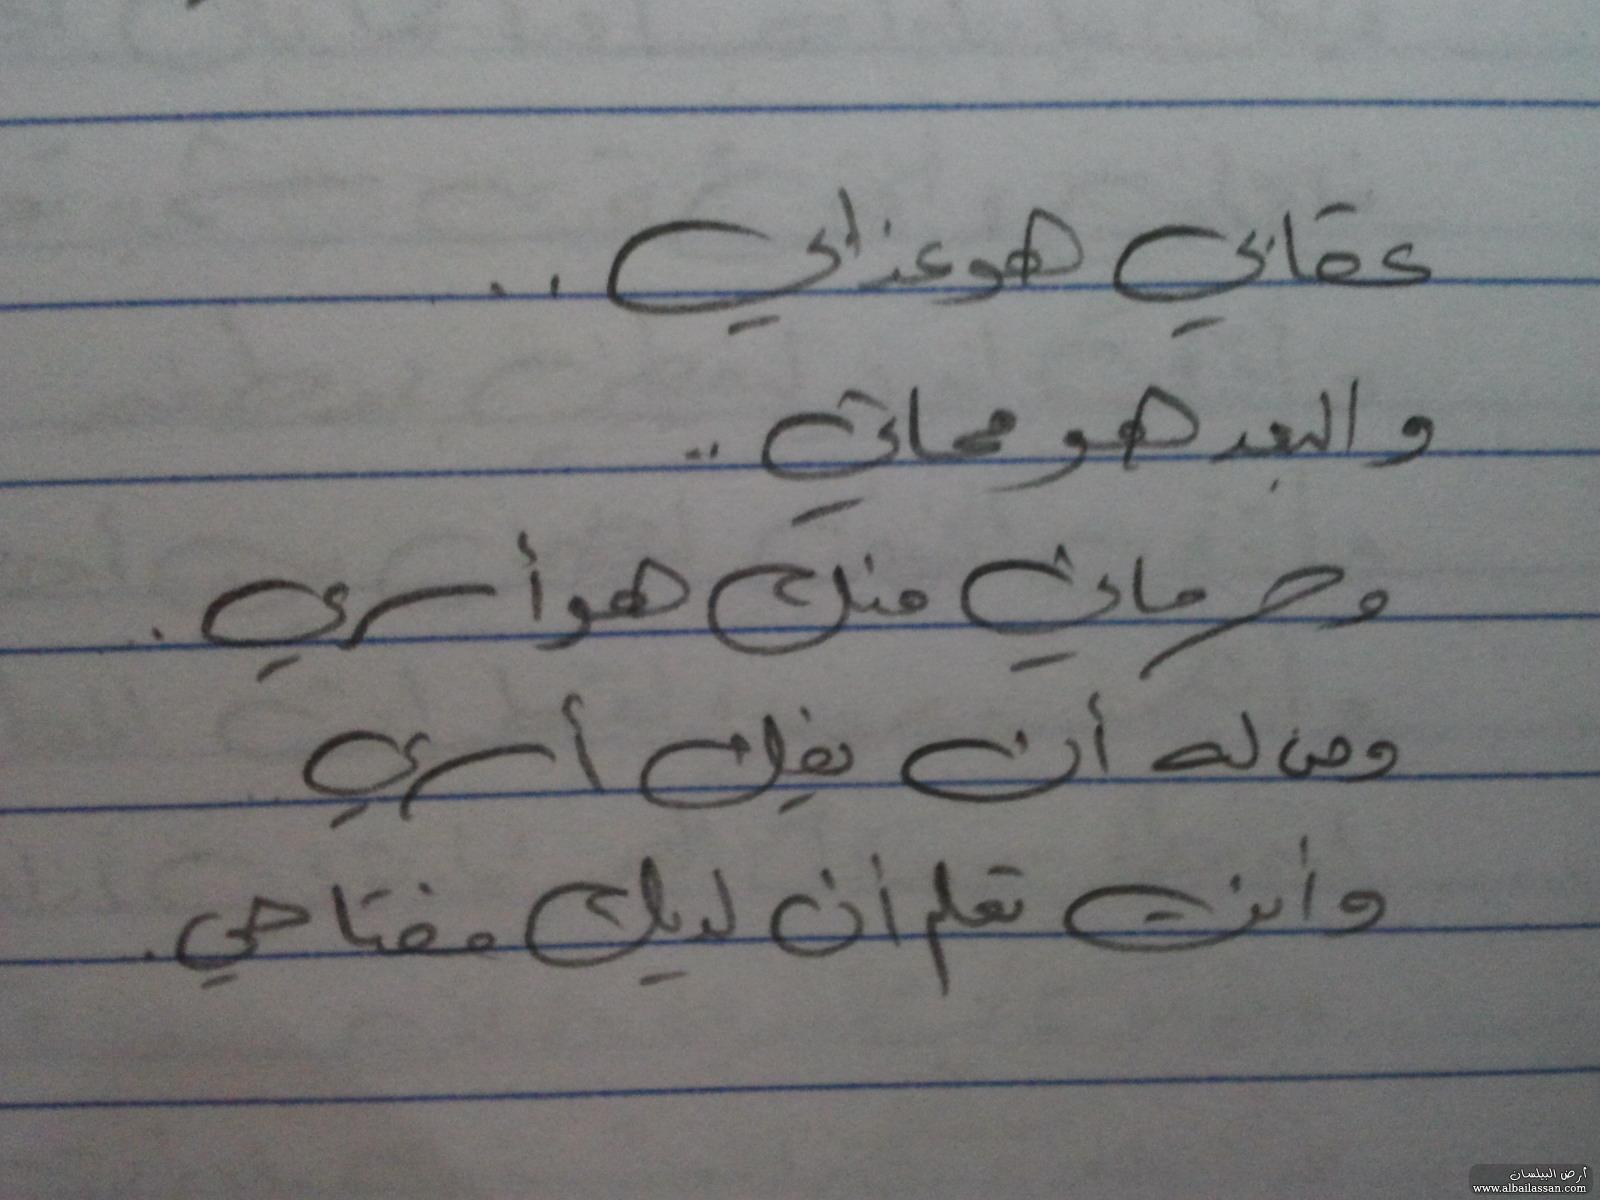 عقابي هو عذابي ..
والبعد هو مماتي ..
وحرماني منك هو أسري .
ومن له أن يفك أسري
وأنت تعلم أن لديك مفتاحي .
أرض البيلسان
www.albailassan.com